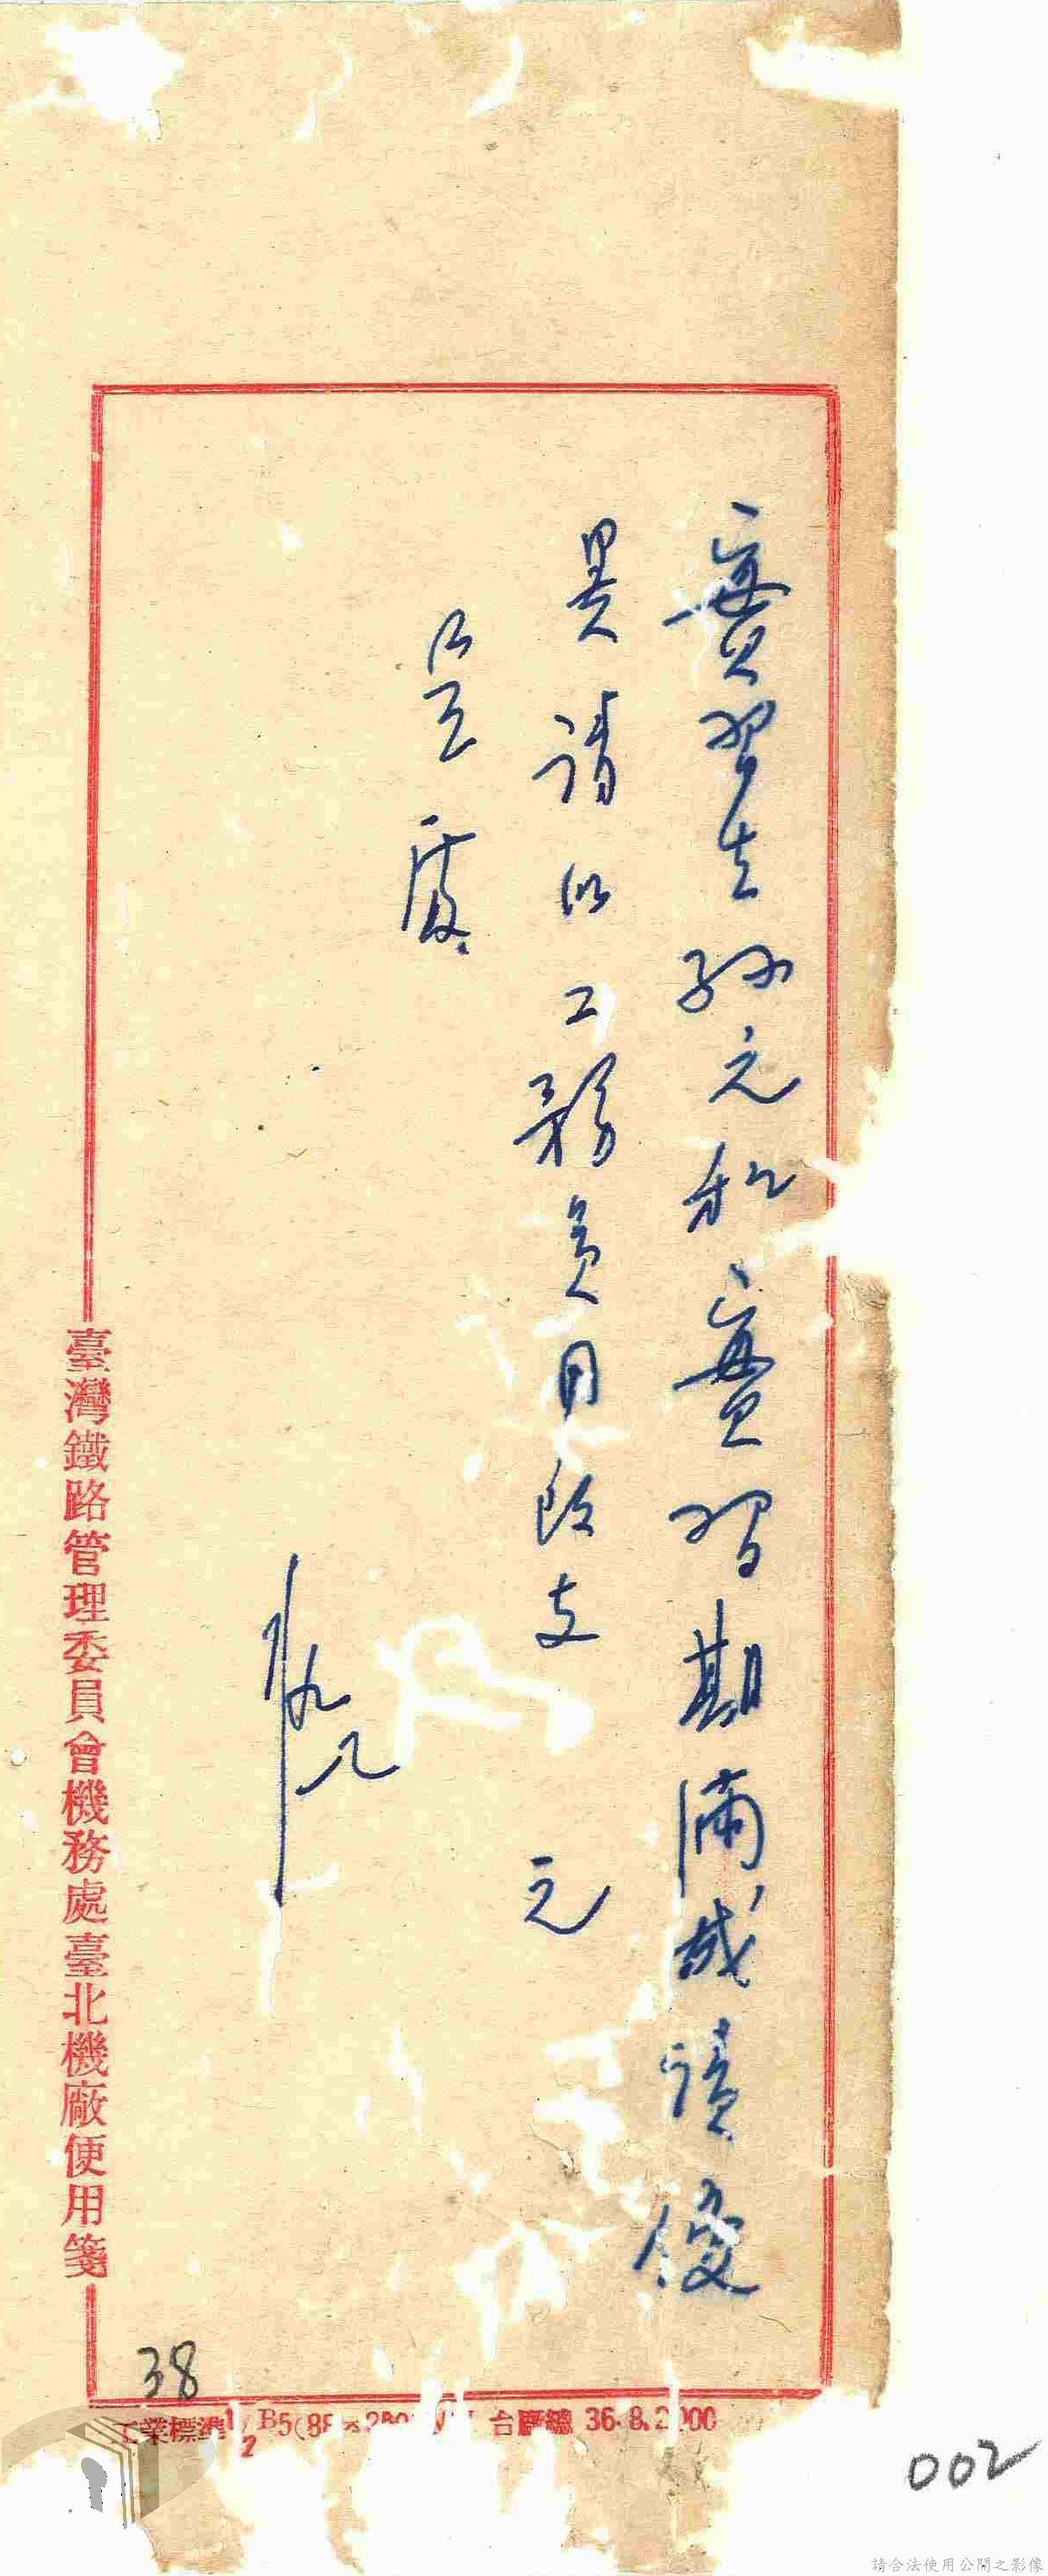 實習生孫元和實習期滿成績優
異請以工務員用改支 元
位置處
臺灣鐵路管理委員會機務處臺北機廠便用箋
38
工業標準1/2 B5(88×2 台廠總 36.8.2,000
002
請合法使用公開之影像